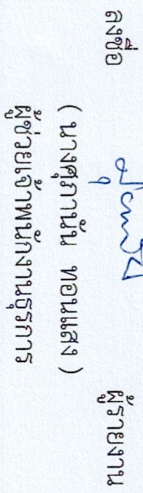 ลงชื่อ ผู้รายงาน
( นางศุภานัน ทอนแสง )
ผู้ช่วยเจ้าพนักงานธุรการ